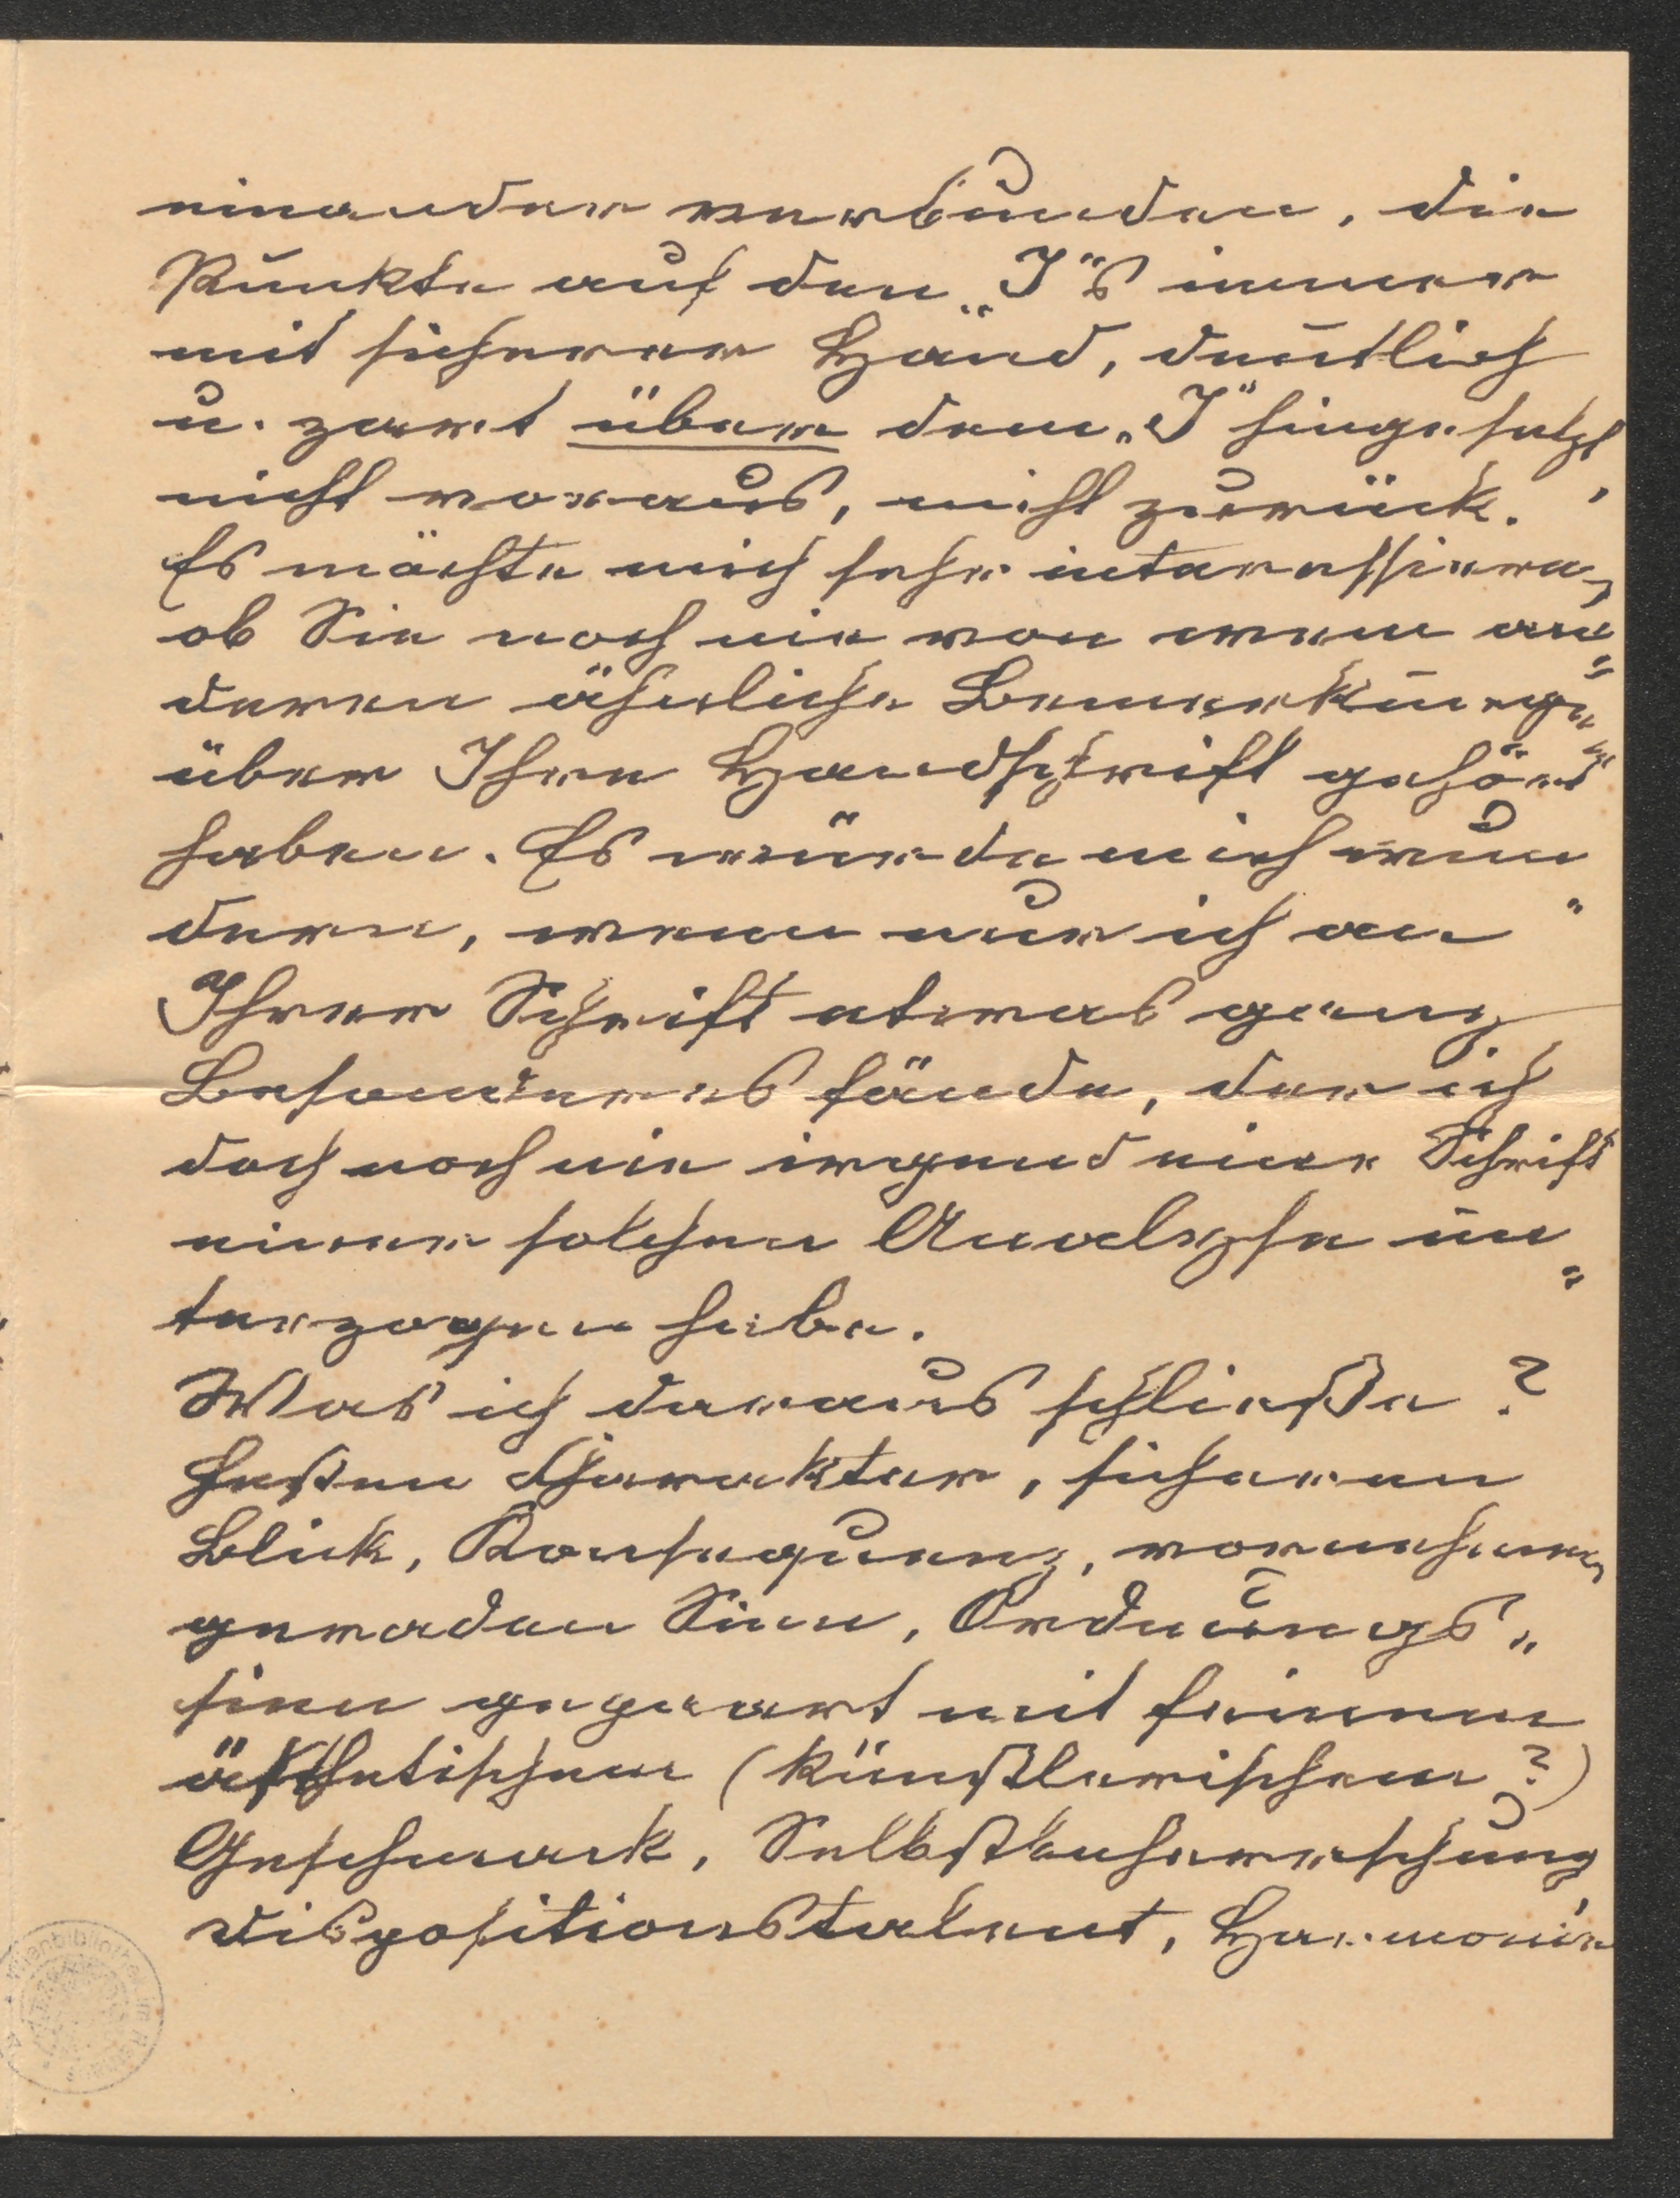 einander verbunden, die
Punkte auf den „I"s immer
mit sicherer Hand, deutlich
u. zart über dem „I" hingesetzt,
nicht voraus, nicht zurück.
Es möchte mich sehr interessieren,
ob Sie noch nie von wem an=
deren ähnliche Bemerkungen
über Ihre Handschrift gehört
haben. Es würde mich wun=
dern, wenn nur ich an
Ihrer Schrift etwas ganz
Besonderes fände, der ich
doch noch nie irgend eine Schrift
einer solchen Analyse un=
terzogen habe.
Was ich daraus schließe?
Festen Charakter, sicheren
Blick, Konsequenz, vornehmen,
geraden Sinn, Ordnungs=
sinn gepaart mit feinem
ästhetischem (künstlerischem?)
Geschmack, Selbstbeherrschung
Dispositionstalent, Harmonie